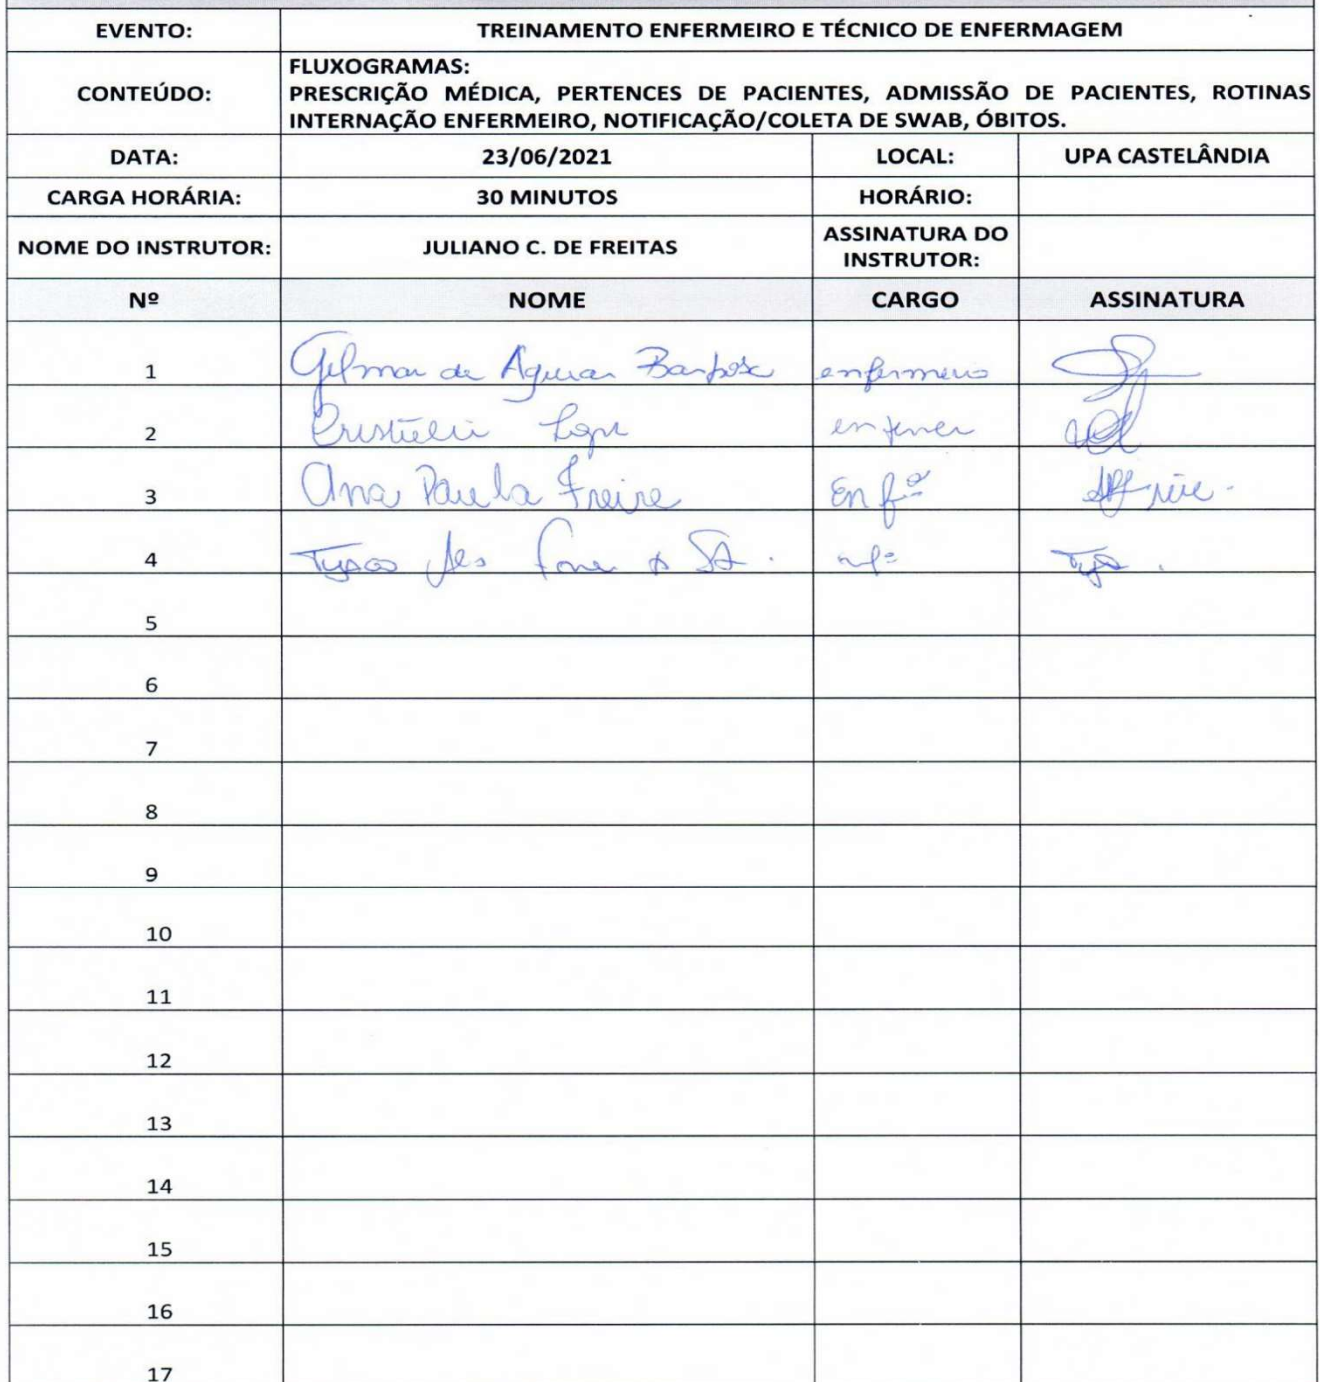 EVENTO: TREINAMENTO ENFERMEIRO E TÉCNICO DE ENFERMAGEM
CONTEÚDO: FLUXOGRAMAS:
PRESCRIÇÃO MÉDICA, PERTENCES DE PACIENTES, ADMISSÃO DE PACIENTES, ROTINAS
INTERNAÇÃO ENFERMEIRO, NOTIFICAÇÃO/COLETA DE SWAB, ÓBITOS.
DATA: 23/06/2021 LOCAL: UPA CASTELÂNDIA
CARGA HORÁRIA: 30 MINUTOS HORÁRIO:
NOME DO INSTRUTOR: JULIANO C. DE FREITAS ASSINATURA DO
INSTRUTOR:
Nº NOME CARGO ASSINATURA
1 Gilmar de Aguiar Barbosa enfermeiro
2
3 Ana Paula Freire Enfª
4
5
6
7
8
9
10
11
12
13
14
15
16
17